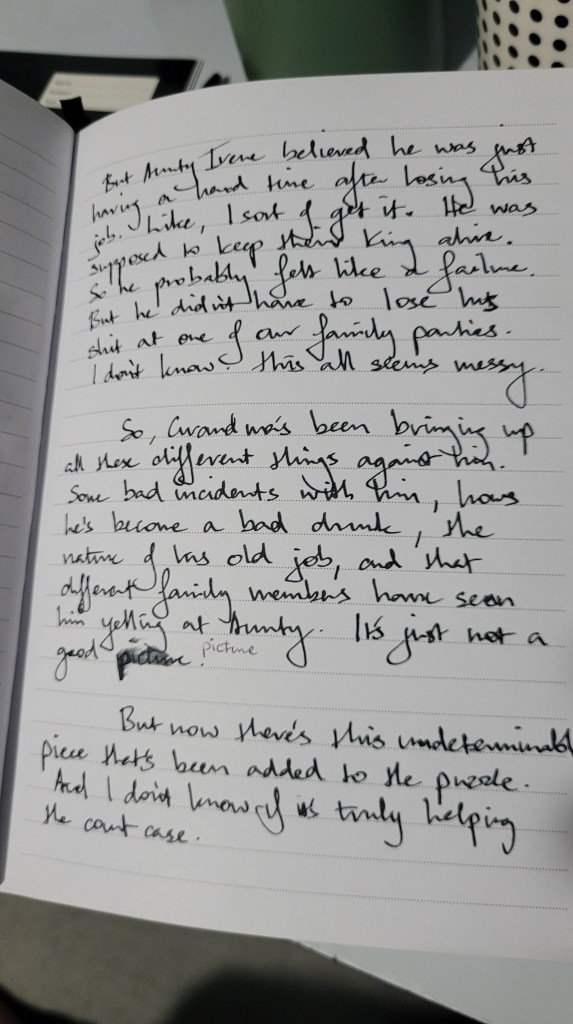 But Aunty Irene believed he was just
having a hard time after losing his
job. Like, I sort of get it. He was
supposed to keep their King alive.
So he probably felt like a failure.
But he didn't have to lose his
shit at one of our family parties.
I don't know. This all seems messy.
So, Grandma's been bringing up
all these different things against him.
Some bad incidents with him, how
he's become a bad drunk, the
nature of his old job, and that
different family members have seen
him yelling at Aunty. It's just not a
good picture. picture
But now there's this undeterminabl
piece that's been added to the puzzle.
And I don't know if it's truly helping
the court case.